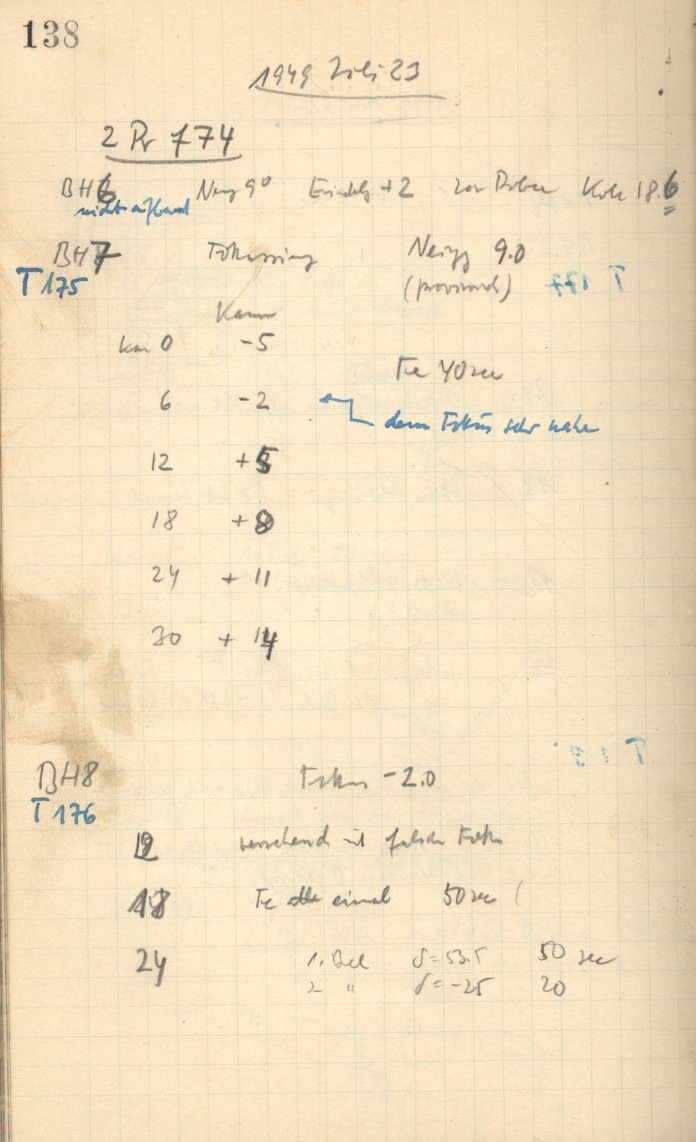 138
1949 Juli 23
2 Pr 774
BH6 Neig 9° +2 zur Probe 18.6
nicht aufbew
BH7 Fokussierung Neigg 9.0
T175 (provisorisch)
Kam
0 -5
Fe 40 sec
6 -2
dem Fokus sehr nahe
12 +5
18 +8
24 +11
30 +14
BH8 Fokus -2.0
T176
12 versehend mit falschem Fokus
18 Fe alle einmal 50 sec (
24 1. Bel δ=53.5 50 sec
2 " δ=-25 20